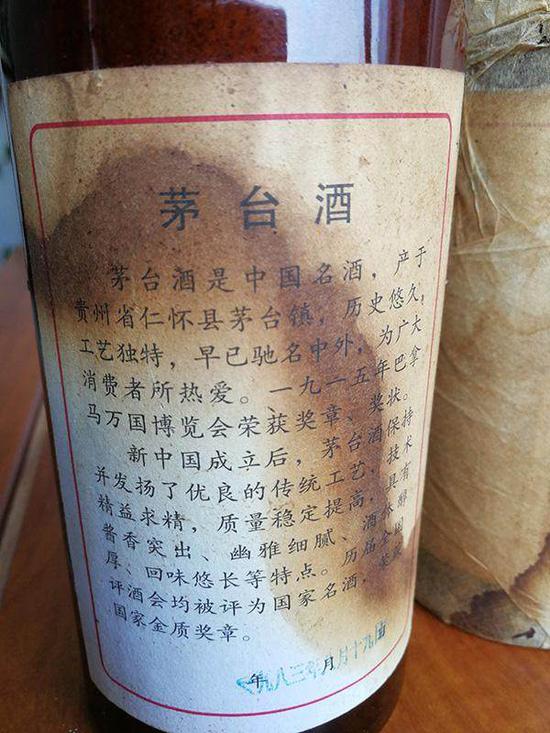 茅台酒
茅台酒是中国名酒，产于
贵州省仁怀县茅台镇，历史悠久，
工艺独特，早已驰名中外，为广大
消费者所热爱。一九一五年巴拿
马万国博览会荣获奖章、奖状。
新中国成立后，茅台酒保持
并发扬了优良的传统工艺，技术
精益求精，质量稳定提高，具有
酱香突出、幽雅细腻、酒体醇
厚、回味悠长等特点。历届全国
评酒会均被评为国家名酒，荣获
国家金质奖章。
九八三年 月十九日
年 月